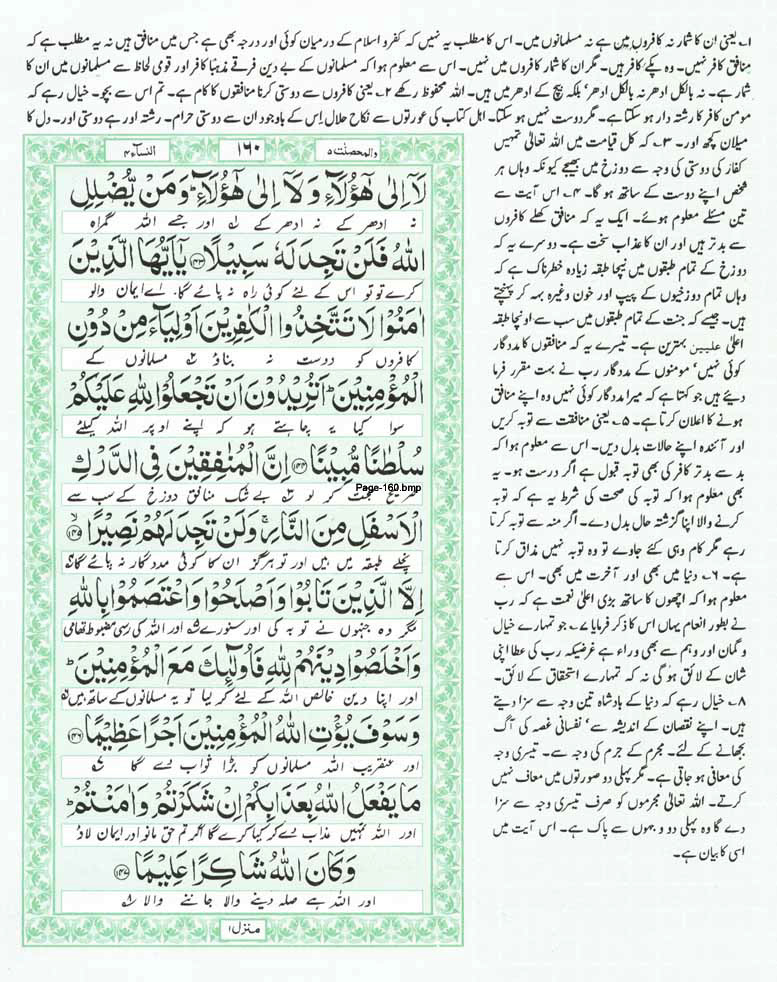 ۱۔ یعنی ان کا شمار نہ کافروں میں ہے نہ مسلمانوں میں۔ اس کا مطلب یہ نہیں کہ کفر و اسلام کے درمیان کوئی اور درجہ بھی ہے جس میں منافق ہیں نہ یہ مطلب ہے کہ
منافق کافر نہیں۔ وہ پکے کافر ہیں۔ مگر ان کا شمار کافروں میں نہیں۔ اس سے معلوم ہوا کہ مسلمانوں کے بے دین فرقے مذہباً کافر اور قومی لحاظ سے مسلمانوں میں ان کا
شمار ہے۔ نہ بالکل ادھر نہ بالکل ادھر' بلکہ بیچ کے ادھر میں ہیں۔ اللہ محفوظ رکھے ۲۔ یعنی کافروں سے دوستی کرنا منافقوں کا کام ہے۔ تم اس سے بچو۔ خیال رہے کہ
مومن کافر کا رشتہ دار ہو سکتا ہے۔ مگر دوست نہیں ہو سکتا۔ اہل کتاب کی عورتوں سے نکاح حلال اس کے باوجود ان سے دوستی حرام۔ رشتہ اور ہے دوستی اور۔ دل کا
میلان کچھ اور۔ ۳۔ کہ کل قیامت میں اللہ تعالیٰ تمہیں
کفار کی دوستی کی وجہ سے دوزخ میں بھیجے کیونکہ وہاں ہر
شخص اپنے دوست کے ساتھ ہو گا۔ ۴۔ اس آیت سے
تین مسئلے معلوم ہوئے۔ ایک یہ کہ منافق کھلے کافروں
سے بدتر ہیں اور ان کا عذاب سخت ہے۔ دوسرے یہ کہ
دوزخ کے تمام طبقوں میں نیچا طبقہ زیادہ خطرناک ہے کہ
وہاں تمام دوزخیوں کے پیپ اور خون وغیرہ بہہ کر پہنچتے
ہیں۔ جیسے کہ جنت کے تمام طبقوں میں سب سے اونچا طبقہ
اعلیٰ علیین بہترین ہے۔ تیسرے یہ کہ منافقوں کا مددگار
کوئی نہیں' مومنوں کے مددگار رب نے بہت مقرر فرما
دیئے ہیں جو کہتا ہے کہ میرا مددگار کوئی نہیں وہ اپنے منافق
ہونے کا اعلان کرتا ہے۔ ۵۔ یعنی منافقت سے توبہ کریں
اور آئندہ اپنے حالات بدل دیں۔ اس سے معلوم ہوا کہ
بد سے بدتر کافر کی بھی توبہ قبول ہے اگر درست ہو۔ یہ
بھی معلوم ہوا کہ توبہ کی صحت کی شرط یہ ہے کہ توبہ
کرنے والا اپنا گزشتہ حال بدل دے۔ اگر منہ سے توبہ کرتا
رہے مگر کام وہی کئے جاوے تو وہ توبہ نہیں مذاق کرتا
ہے۔ ۶۔ دنیا میں بھی اور آخرت میں بھی۔ اس سے
معلوم ہوا کہ اچھوں کا ساتھ بڑی اعلیٰ نعمت ہے کہ رب
نے بطور انعام یہاں اس کا ذکر فرمایا ۷۔ جو تمہارے خیال
و گمان اور وہم سے بھی وراء ہے غرضیکہ رب کی عطا اپنی
شان کے لائق ہو گی نہ کہ تمہارے استحقاق کے لائق۔
۸۔ خیال رہے کہ دنیا کے بادشاہ تین وجہ سے سزا دیتے
ہیں۔ اپنے نقصان کے اندیشہ سے' نفسانی غصہ کی آگ
بجھانے کے لئے۔ مجرم کے جرم کی وجہ سے۔ تیسری وجہ
کی معافی ہو جاتی ہے۔ مگر پہلی دو صورتوں میں معاف نہیں
کرتے۔ اللہ تعالیٰ مجرموں کو صرف تیسری وجہ سے سزا
دے گا وہ پہلی دو وجہوں سے پاک ہے۔ اس آیت میں
اسی کا بیان ہے۔
والمحصنٰت ۵ ۱۶۰ النسآء ۴
لَآ اِلٰى هٰٓؤُلَآءِ وَلَآ اِلٰى هٰٓؤُلَآءِ ؕ وَمَنْ يُّضْلِلِ
نہ ادھر کے نہ ادھر کے اور جسے اللہ گمراہ
اللّٰهُ فَلَنْ تَجِدَ لَهٗ سَبِيْلًا ﴿۱۴۳﴾ يٰٓاَيُّهَا الَّذِيْنَ
کرے تو تو اس کے لئے کوئی راہ نہ پائے گا۔ اے ایمان والو
اٰمَنُوْا لَا تَتَّخِذُوا الْكٰفِرِيْنَ اَوْلِيَآءَ مِنْ دُوْنِ
کافروں کو دوست نہ بناؤ مسلمانوں کے
الْمُؤْمِنِيْنَ ؕ اَتُرِيْدُوْنَ اَنْ تَجْعَلُوْا لِلّٰهِ عَلَيْكُمْ
سوا کیا یہ چاہتے ہو کہ اپنے اوپر اللہ کیلئے
سُلْطٰنًا مُّبِيْنًا ﴿۱۴۴﴾ اِنَّ الْمُنٰفِقِيْنَ فِى الدَّرْكِ
صریح حجت کر لو بے شک منافق دوزخ کے سب سے
Page-160.bmp
الْاَسْفَلِ مِنَ النَّارِ ۚ وَلَنْ تَجِدَ لَهُمْ نَصِيْرًا ﴿۱۴۵﴾
نچلے طبقہ میں ہیں اور تو ہرگز ان کا کوئی مددگار نہ پائے گا
اِلَّا الَّذِيْنَ تَابُوْا وَاَصْلَحُوْا وَاعْتَصَمُوْا بِاللّٰهِ
مگر وہ جنہوں نے توبہ کی اور سنورے اور اللہ کی رسی مضبوط تھامی
وَاَخْلَصُوْا دِيْنَهُمْ لِلّٰهِ فَاُولٰٓئِكَ مَعَ الْمُؤْمِنِيْنَ ؕ
اور اپنا دین خالص اللہ کے لئے کر لیا تو یہ مسلمانوں کے ساتھ ہیں
وَسَوْفَ يُؤْتِ اللّٰهُ الْمُؤْمِنِيْنَ اَجْرًا عَظِيْمًا ﴿۱۴۶﴾
اور عنقریب اللہ مسلمانوں کو بڑا ثواب دے گا
مَا يَفْعَلُ اللّٰهُ بِعَذَابِكُمْ اِنْ شَكَرْتُمْ وَاٰمَنْتُمْ ؕ
اور اللہ تمہیں عذاب دے کر کیا کرے گا اگر تم حق مانو اور ایمان لاؤ
وَكَانَ اللّٰهُ شَاكِرًا عَلِيْمًا ﴿۱۴۷﴾
اور اللہ ہے صلہ دینے والا جاننے والا
منزل ۱